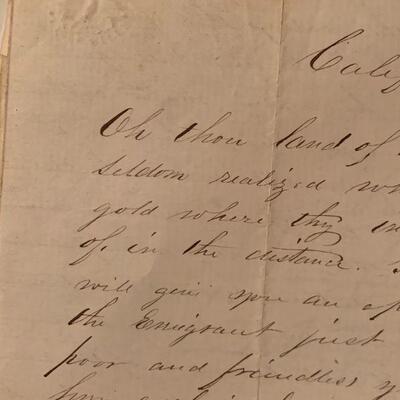 Calif
Oh thou land of
seldom realized wh
gold where thy in
of. in the distance.
will give you an op
the Emigrant just
poor and friendless y